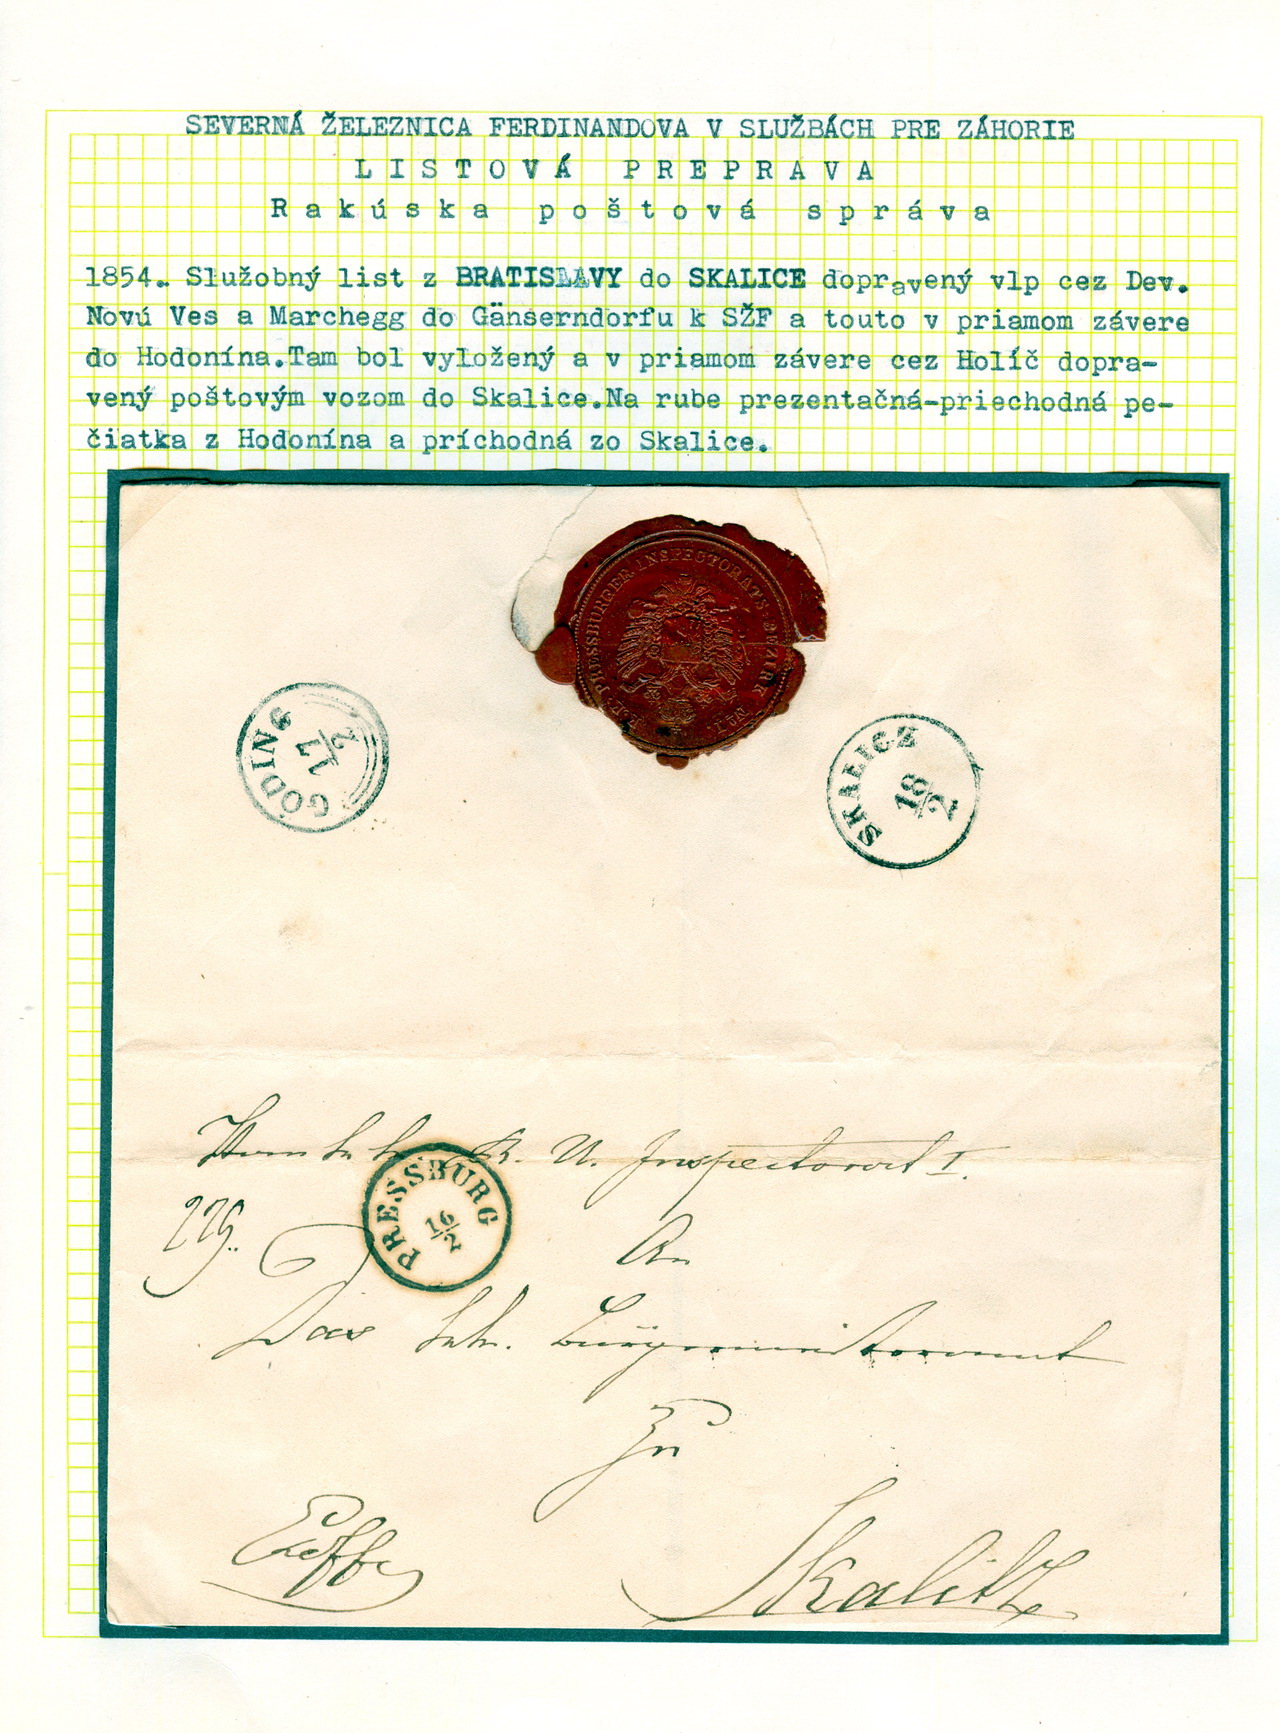 SEVERNÁ ŽELEZNICA FERDINANDOVA V SLUŽBÁCH PRE ZÁHORIE
LISTOVÁ PREPRAVA
Rakúska poštová správa
1854. Služobný list z BRATISLAVY do SKALICE dopravený vlp cez Dev.
Novú Ves a Marchegg do Gänserndorfu k SŽF a touto v priamom závere
do Hodonína.Tam bol vyložený a v priamom závere cez Holíč dopra-
vený poštovým vozom do Skalice.Na rube prezentačná-priechodná pe-
čiatka z Hodonína a príchodná zo Skalice.
PRESSBURGER INSPECTORATS-BEZIRK
GÖDING
17/2
SKALICZ
18/2
Vom k.k. B. U. Inspectorat I.
PRESSBURG
16/2
229.
An
Das k.k. Bürgermeisteramt
Zu
Skalitz